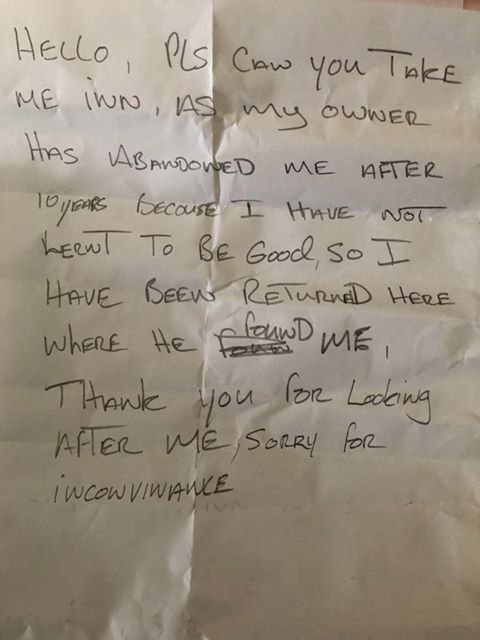 HELLO, PLS CAN YOU TAKE
ME INN, AS my OWNER
HAS ABANDONED ME AFTER
10 YEARS BECOUSE I HAVE NOT
LERNT TO BE Good, SO I
HAVE BEEN RETURNED HERE
WHERE HE found ME,
THANK you for Looking
AFTER ME, SORRY for
INCONVINANCE